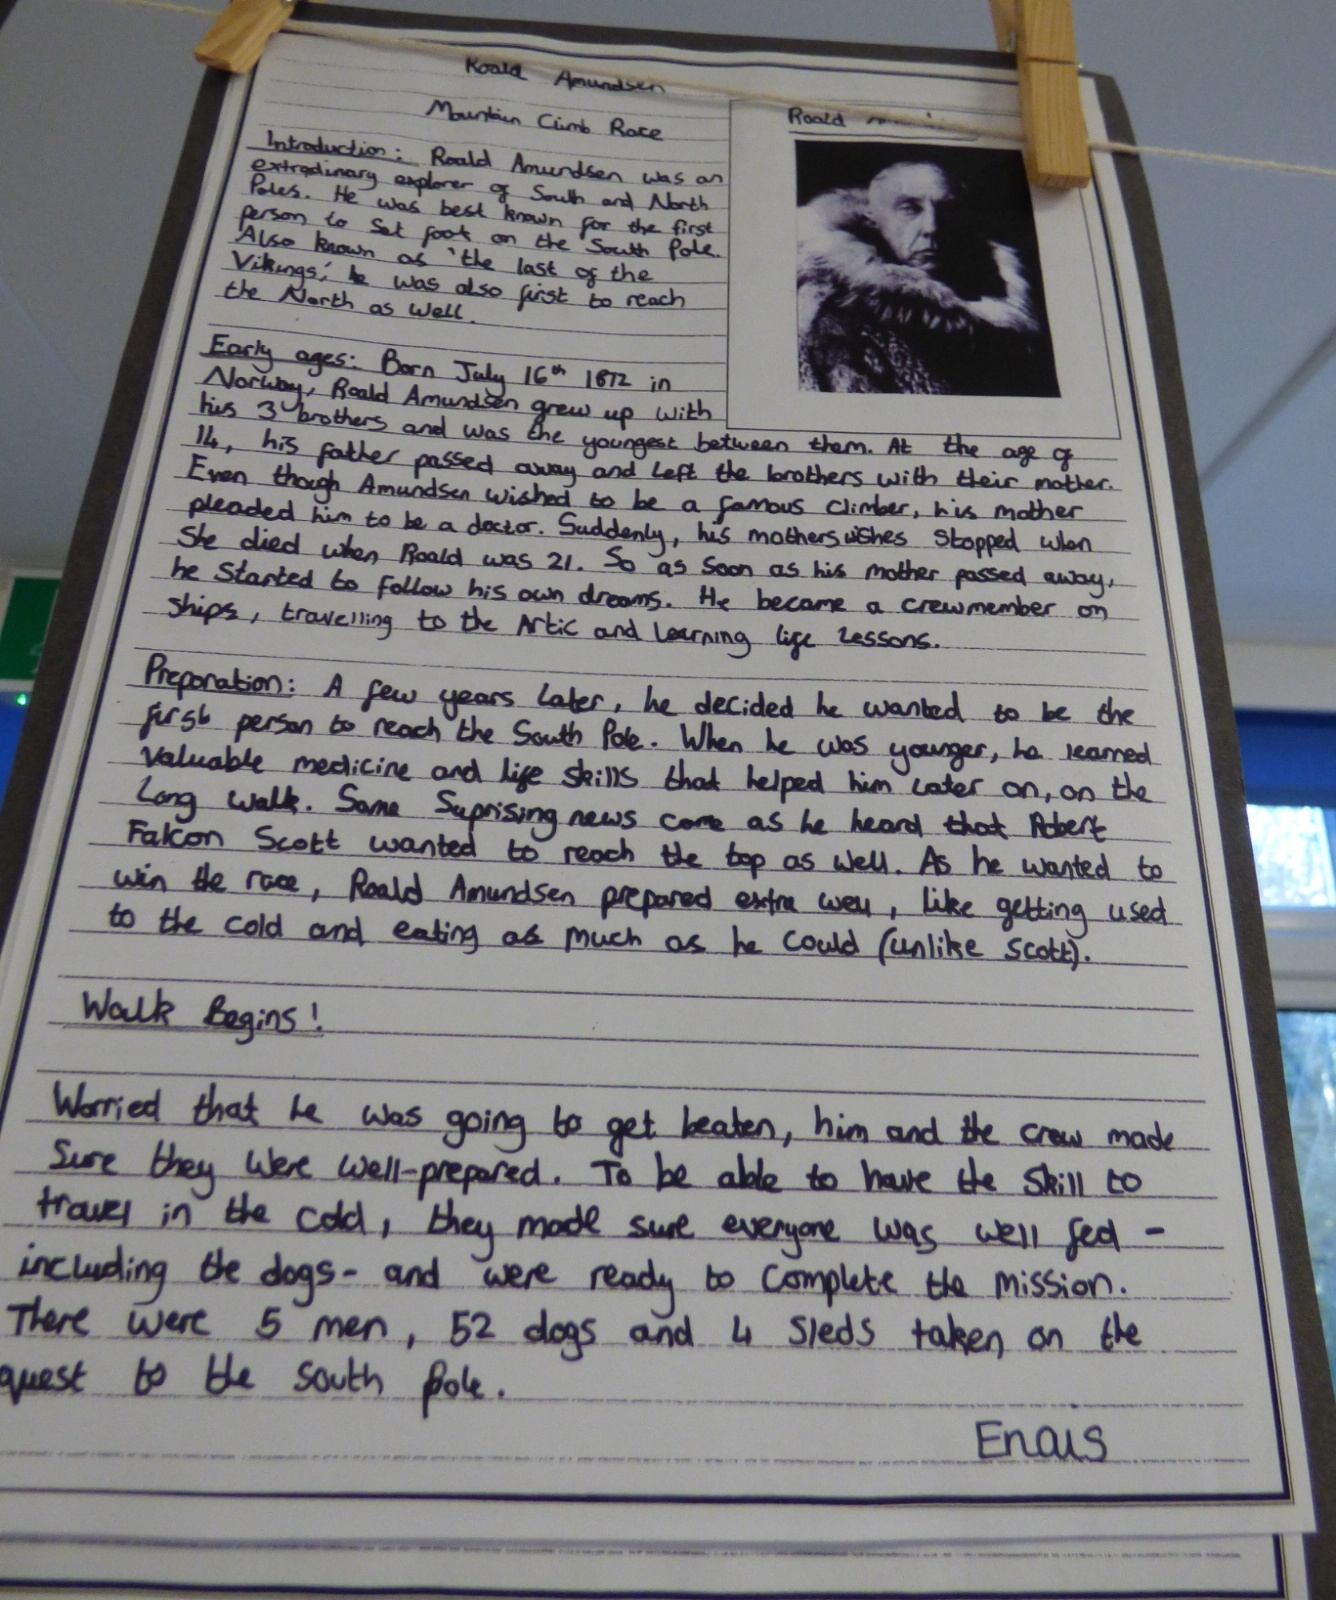 Roald Amundsen
Mountain Climb Race
Roald
Introduction: Roald Amundsen was an
extradinary explorer of South and North
Poles. He was best known for the first
person to set foot on the South Pole.
Also known as 'the last of the
Vikings,' he was also first to reach
the North as well.
Early ages: Born July 16th 1872 in
Norway, Roald Amundsen grew up with
his 3 brothers and was the youngest between them. At the age of
14, his father passed away and left the brothers with their mother.
Even though Amundsen wished to be a famous climber, his mother
pleaded him to be a doctor. Suddenly, his mothers wishes stopped when
she died when Roald was 21. So as soon as his mother passed away,
he started to follow his own dreams. He became a crewmember on
ships, travelling to the Artic and learning life lessons.
Preparation: A few years later, he decided he wanted to be the
first person to reach the South Pole. When he was younger, he learned
valuable medicine and life skills that helped him later on, on the
long walk. Some Suprising news came as he heard that Robert
Falcon Scott wanted to reach the top as well. As he wanted to
win the race, Roald Amundsen prepared extra well, like getting used
to the cold and eating as much as he could (unlike Scott).
Walk Begins!
Worried that he was going to get beaten, him and the crew made
sure they were well-prepared. To be able to have the skill to
travel in the cold, they made sure everyone was well fed -
including the dogs - and were ready to complete the mission.
There were 5 men, 52 dogs and 4 sleds taken on the
quest to the south pole.
Enais